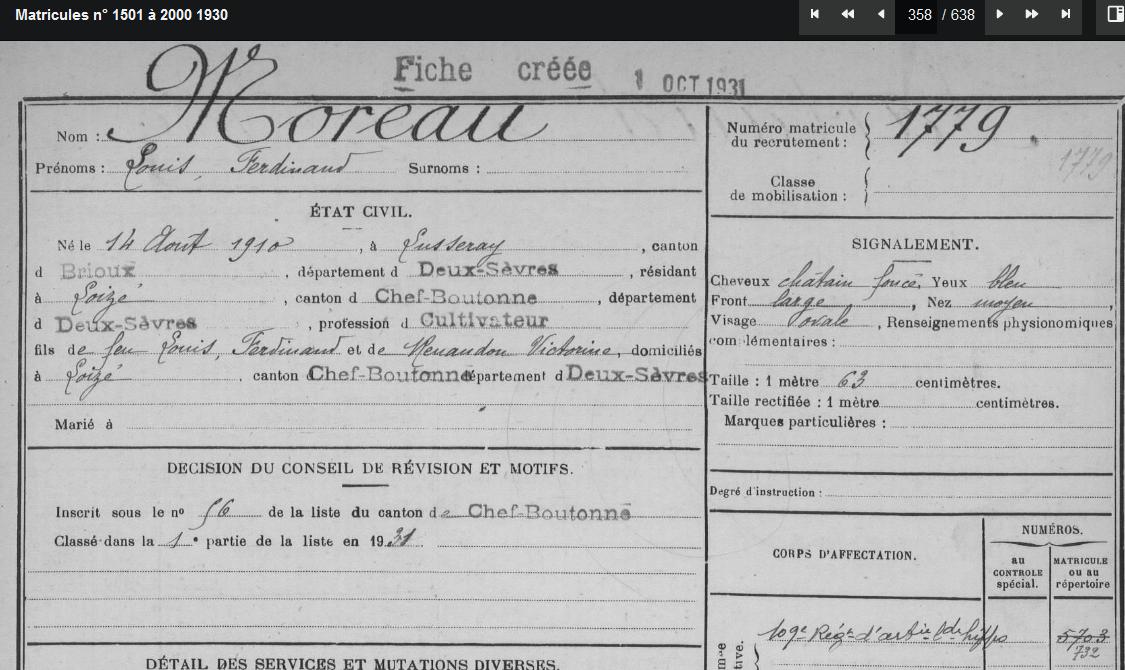 Matricules n° 1501 à 2000 1930
358 / 638
Fiche créée 1 OCT 1931
Nom : Moreau
Prénoms : Louis, Ferdinand Surnoms :
Numéro matricule du recrutement : 1779
1779
Classe de mobilisation :
ÉTAT CIVIL.
Né le 14 Août 1910, à Lusseray, canton
d Brioux, département d Deux-Sèvres, résidant
à Loizé, canton d Chef-Boutonne, département
d Deux-Sèvres, profession d Cultivateur
fils de feu Louis, Ferdinand et de Renaudon Victorine, domiciliés
à Loizé, canton d Chef-Boutonne département d Deux-Sèvres
Marié à
SIGNALEMENT.
Cheveux châtain foncé, Yeux bleu
Front large, Nez moyen,
Visage ovale, Renseignements physionomiques
complémentaires :
Taille : 1 mètre 63 centimètres.
Taille rectifiée : 1 mètre centimètres.
Marques particulières :
Degré d'instruction :
DECISION DU CONSEIL DE RÉVISION ET MOTIFS.
Inscrit sous le no 56 de la liste du canton de Chef-Boutonne
Classé dans la 1e partie de la liste en 1931
CORPS D'AFFECTATION.
NUMÉROS.
au CONTROLE spécial.
MATRICULE ou au répertoire
109e Régt d'artie lde hipps
5703
732
DÉTAIL DES SERVICES ET MUTATIONS DIVERSES.